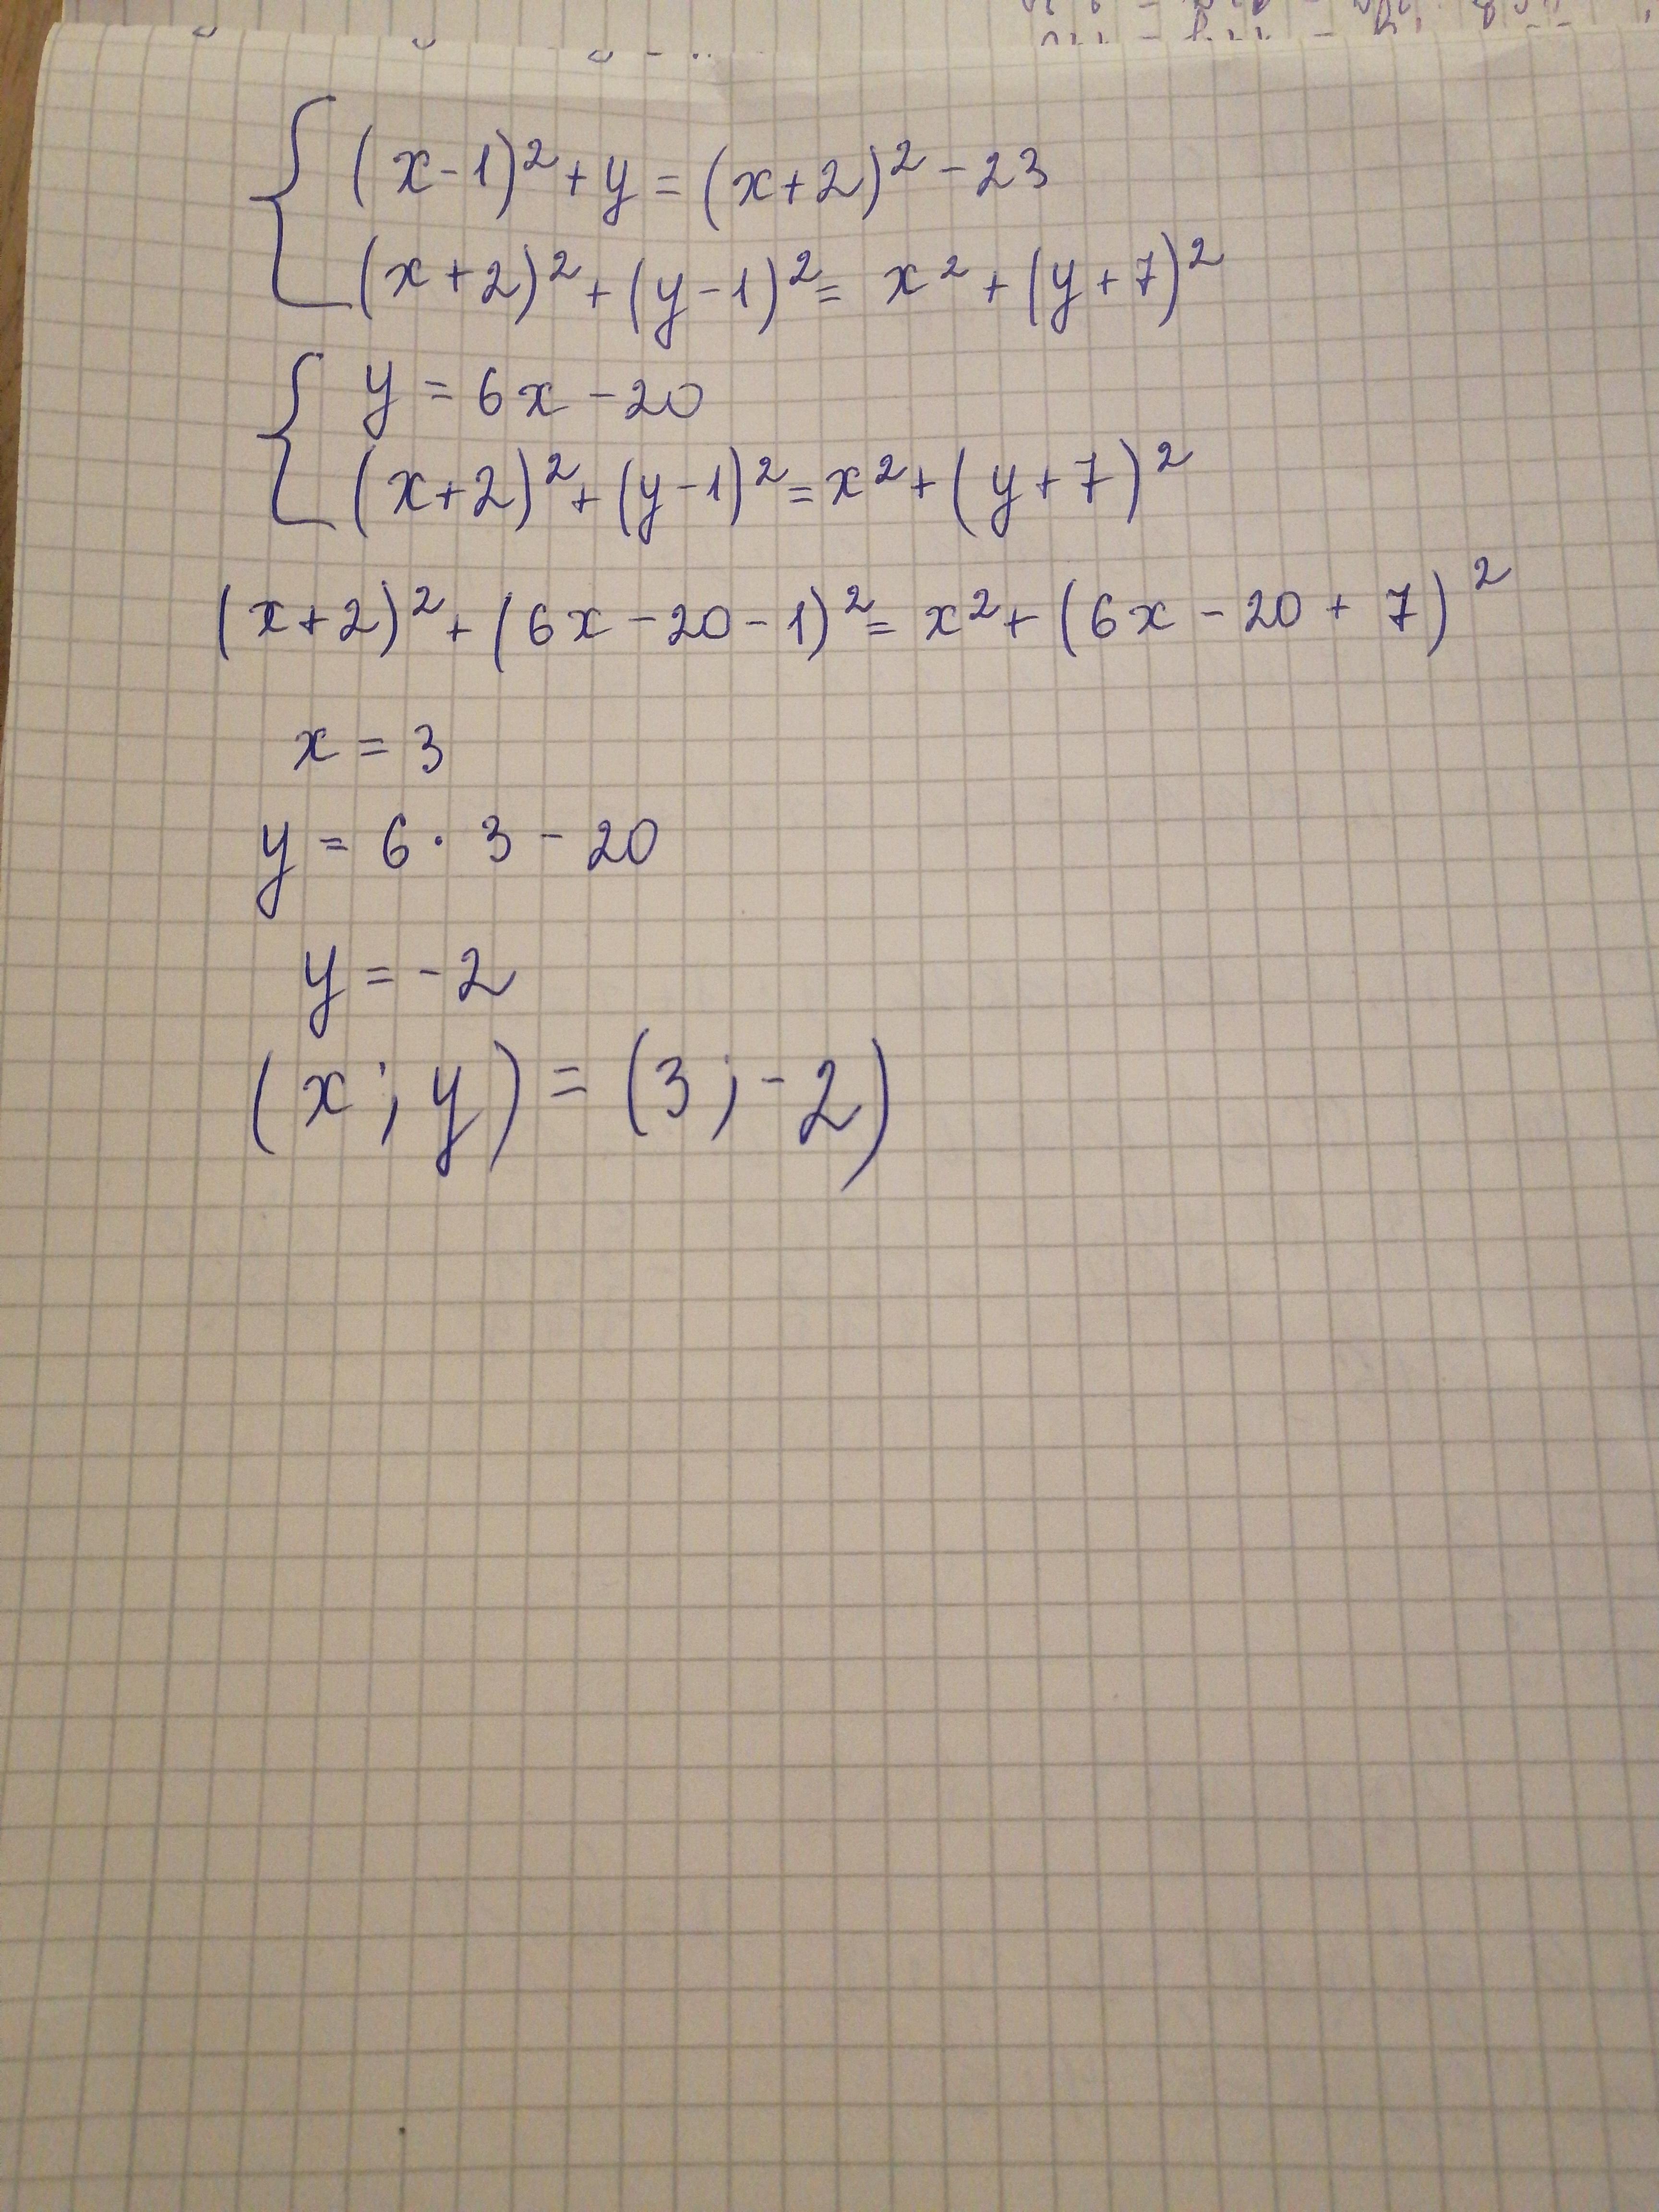 (x-1)² + y = (x+2)² - 23
(x+2)² + (y-1)² = x² + (y+7)²
y = 6x - 20
(x+2)² + (y-1)² = x² + (y+7)²
(x+2)² + (6x - 20 - 1)² = x² + (6x - 20 + 7)²
x = 3
y = 6 · 3 - 20
y = -2
(x ; y) = (3 ; -2)